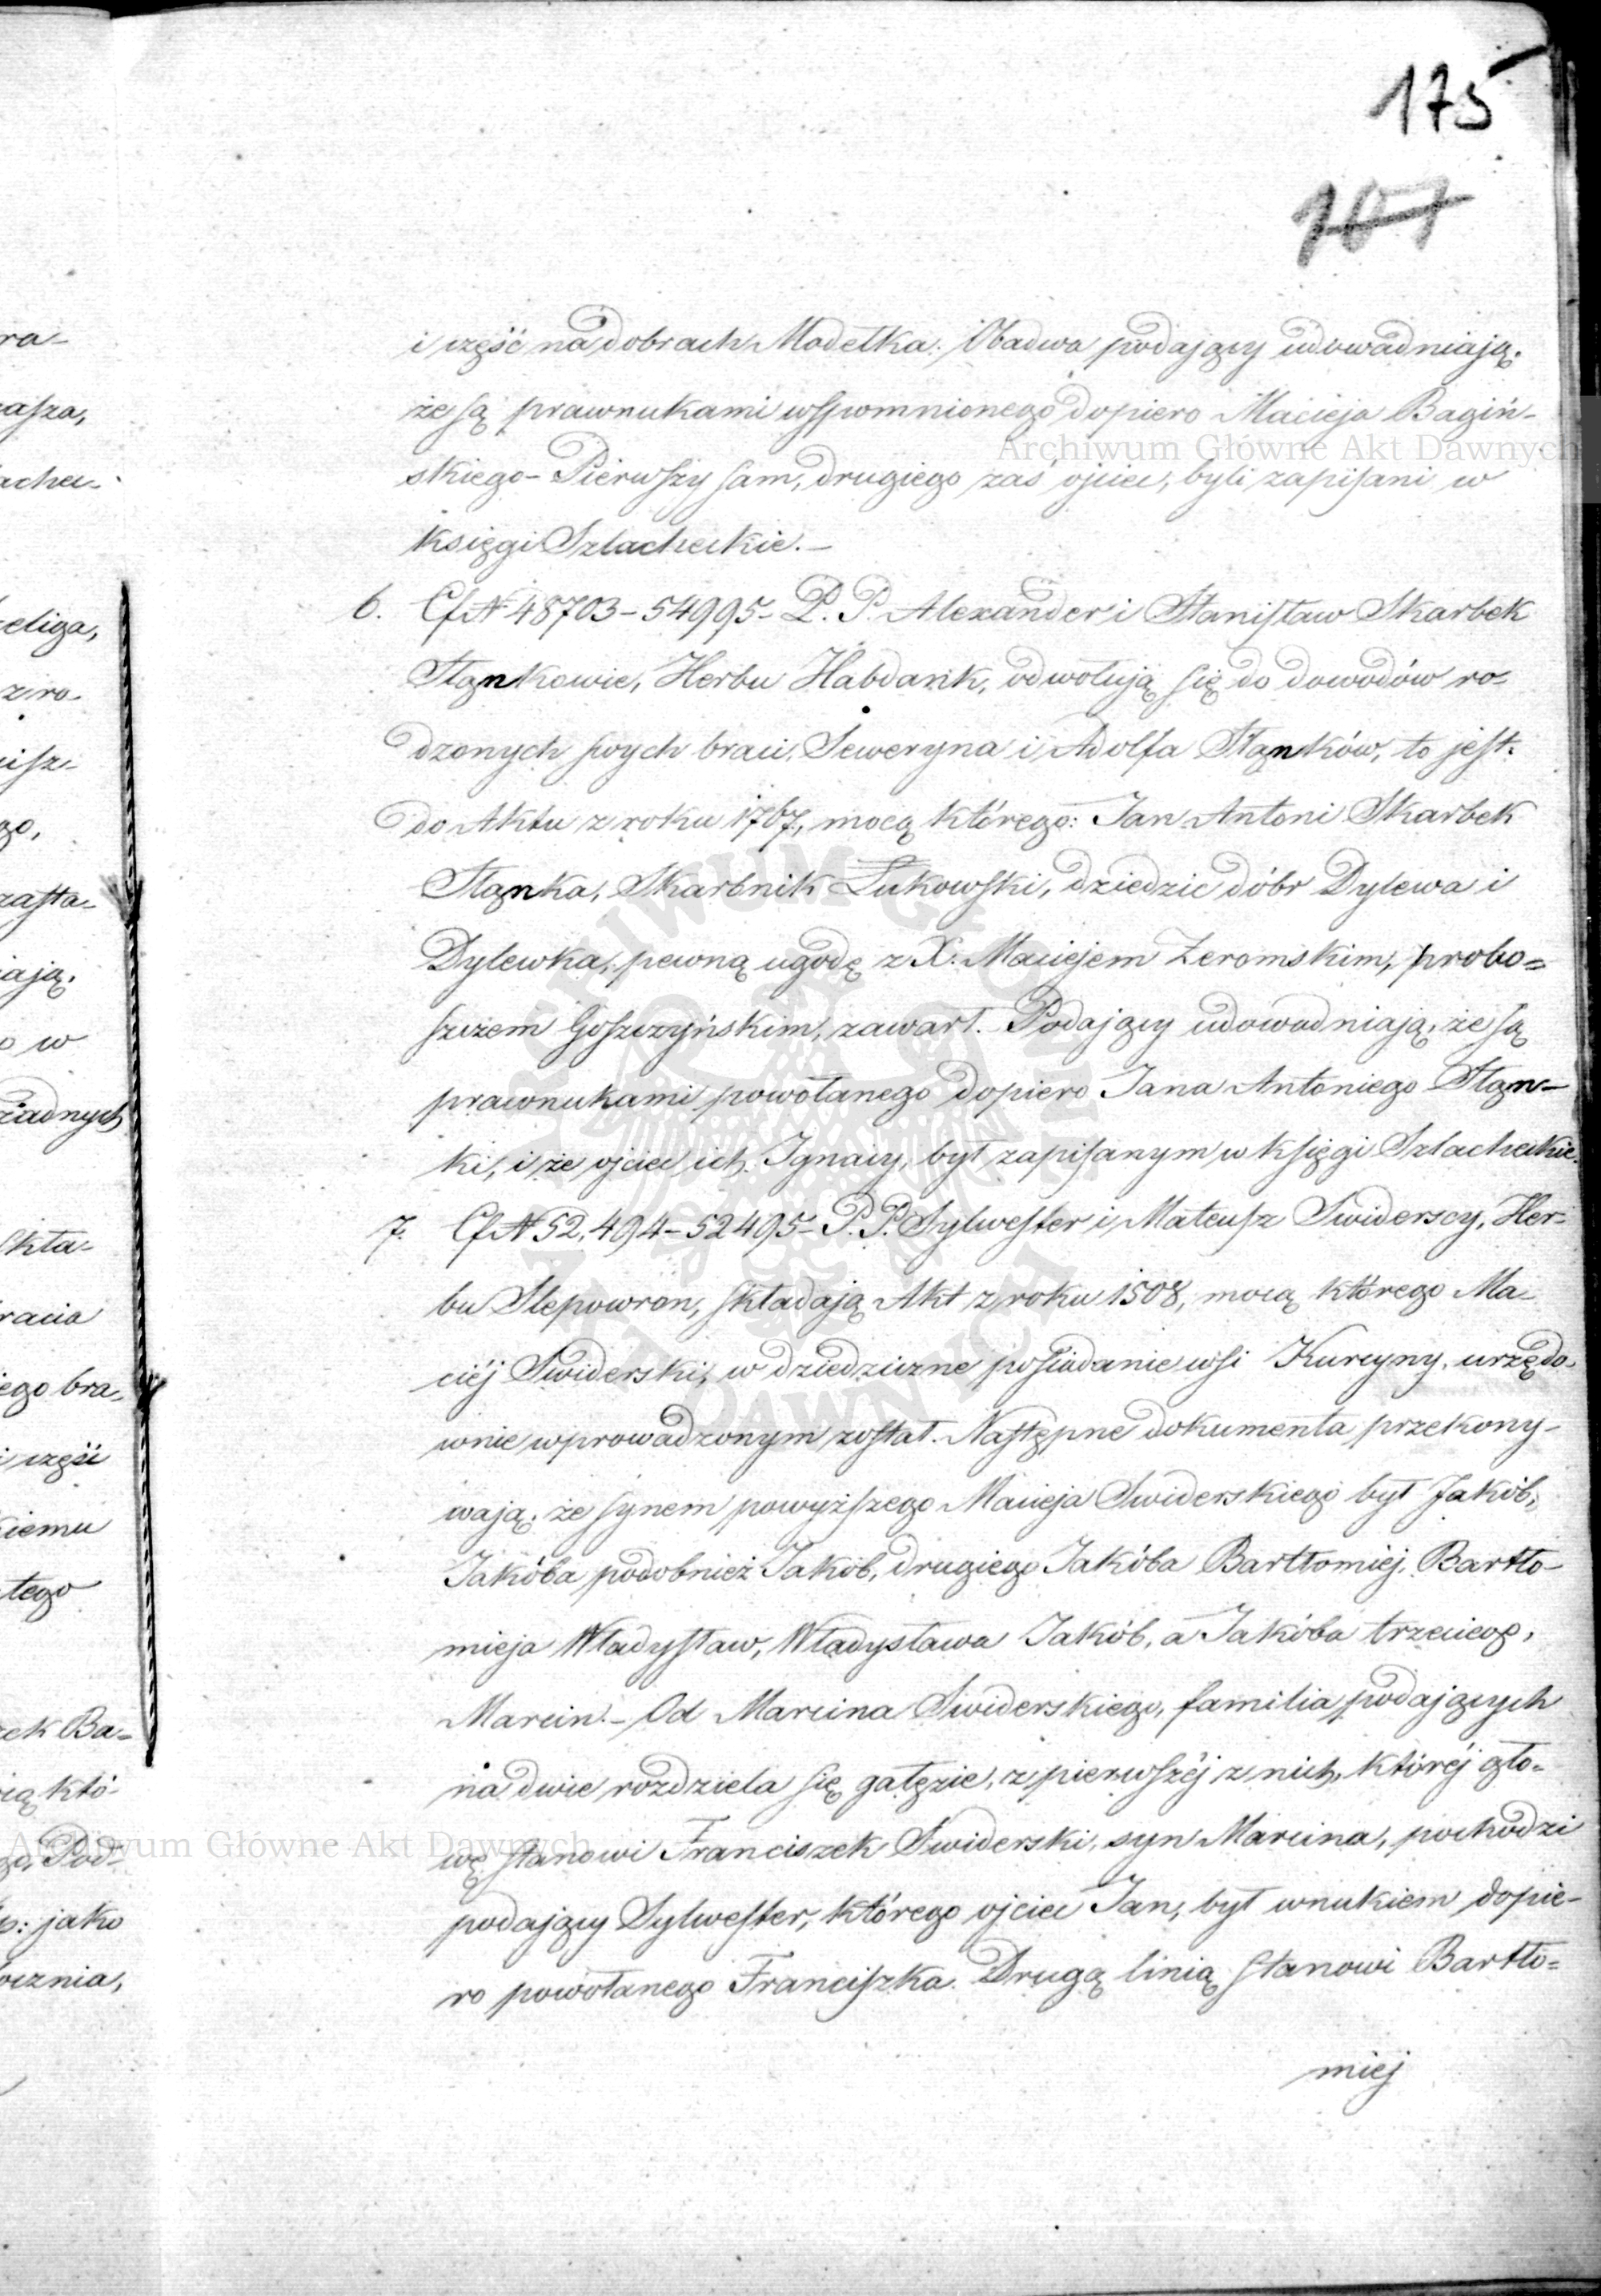 175
107
i część na dobrach Modełka. Obadwa podający udowadniają,
że są prawnukami wspomnionego dopiero Macieja Bagiń-
skiego – Pierwszy sam, drugiego zaś ojciec, byli zapisani w
księgi Szlacheckie. –
6. Cf N 48703 – 54995 – P. P. Alexander i Stanisław Skarbek
Sląnkowie, Herbu Habdank, odwołują się do dowodów ro-
dzonych swych braci, Seweryna i Adolfa Sląnków, to jest:
do Aktu z roku 1767, mocą którego: Jan Antoni Skarbek
Sląnka, Skarbnik Łukowski, dziedzic dóbr Dylewa i
Dylewka, pewną ugodę z X. Maciejem Zeromskim, probo=
szczem Goszczyńskim, zawarł. Podający udowadniają, że są
prawnukami powołanego dopiero Jana Antoniego Sląn-
ki, i że ojciec ich, Ignacy, był zapisanym w księgi Szlacheckie.
7. Cf N 52,494 – 52495 – P. P. Sylwester i Mateusz Swiderscy, Her-
bu Slepowron, składają Akt z roku 1508, mocą którego Ma-
ciéj Swiderski, w dziedziczne posiadanie wsi Kurcyny, urzędo-
wnie wprowadzonym został. Następne dokumenta przekony-
wają, że synem powyższego Macieja Swiderskiego był Jakób,
Jakóba podobnież Jakób, drugiego Jakóba Bartłomiéj, Bartło-
mieja Władysław, Władysława Jakób, a Jakóba trzeciego,
Marcin. – Od Marcina Swiderskiego, familia podających
na dwie rozdziela się gałęzie, z pierwszéj z nich, któréj gło=
wę stanowi Franciszek Swiderski, syn Marcina, pochodzi
podający Sylwester, którego ojciec Jan, był wnukiem dopie-
ro powołanego Franciszka. Drugą linią stanowi Bartło=
miej
Archiwum Główne Akt Dawnych
Archiwum Główne Akt Dawnych
ARCHIWUM GŁÓWNE AKT DAWNYCH